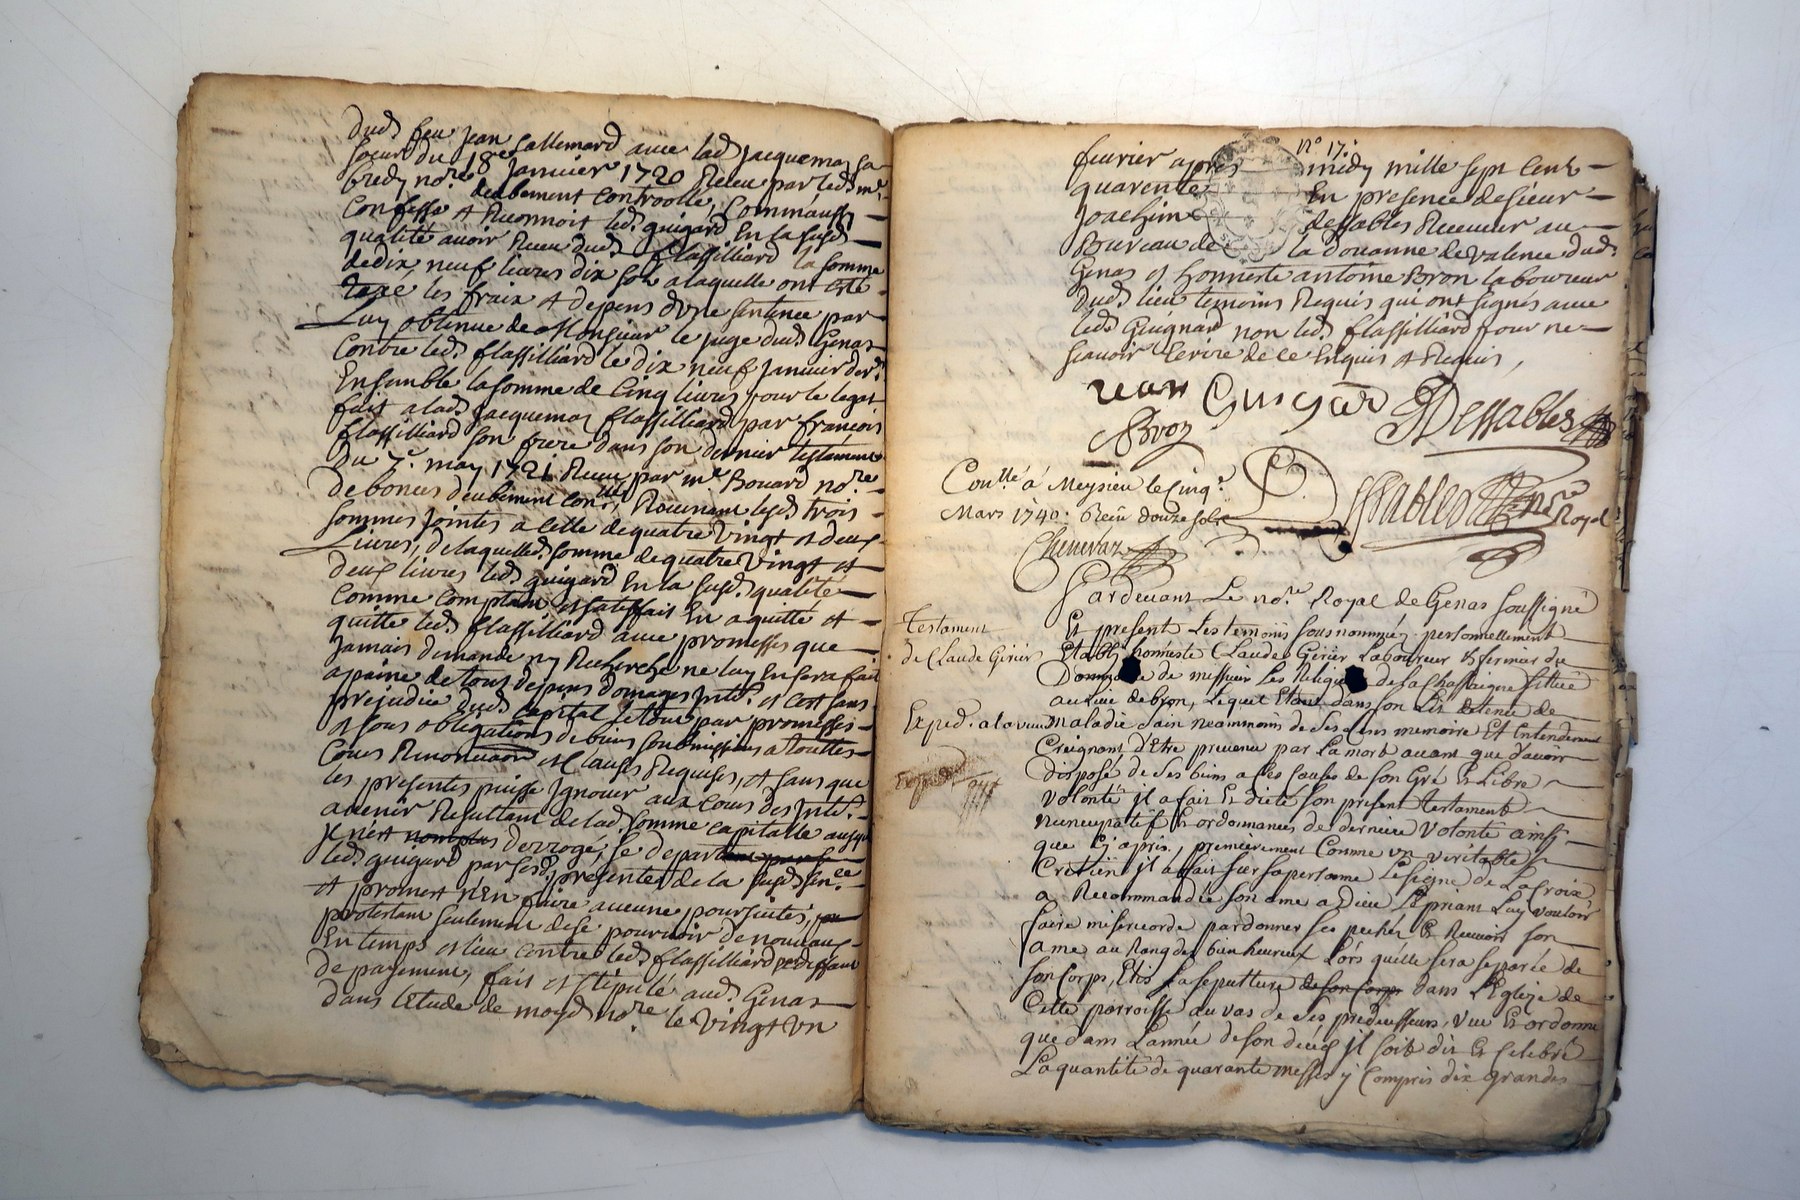 dud. feu jean Sallemard avec lad. jacquema sa
soeur du 18 Janvier 1720 Receu par led. me.
bredy nore. deubement controolle, comm aussy
confesse et Reconnoit led. guigard En la susd.
qualité avoir Receu dud. flassilliard la somme
de dix neuf livres dix sols a laquelle ont esté
Taxe les fraix et depens d'une sentence par
Luy obtenue de Monsieur le juge dud. Genas
contre led. flassilliard le dix neuf Janvier der.
Ensemble la somme de Cinq livres pour le legat
fait a lad. jacquema flassilliard par francois
flassilliard son frere dans son dernier testament
du 7e. may 1721 Receu par me Bouard nore.
de bonces deubement conlle, Revenant lesd. trois
sommes jointes a celle de quatre vingt et deux
Livres, de laquelle somme de quatre vingt et
deux livres led. guigard En la susd. qualité
comme comptant et satisfait En a quitté et
quitte led. flassilliard avec promesses que
jamais demande ny Recherche ne luy En sera fait
a paine de tous depens domages Intt. et c'est sans
prejudice dud. capital le tout par promesses
et sous obligations de biens soubmissions a touttes
Cours Renontiaon et Clauses Requises, et sans que
les presentes puisse Ignover aux cours des Intt.
advenir Resultant de lad. somme capitalle auquel
Il n'est derroge, se depart
led. guigard par sesd. presentes de la susd. sence
et promest n'En faire aucune poursuites,
protestant seulement de se pourvoir de nouveau
En temps et lieu contre led. flassilliard per deffaut
de payement, fait et stipulé aud. Genas
dans l'Etude de moyd. nore. le vingt un
no 17.
fevrier apres midy mille sept cent
quarente En presence de sieur
Joachim dessables Receveur au
Bureau de la douanne de valence dud.
Genas et honneste antoine Bron laboureur
dud. lieu temoins Requis qui ont signés avec
led. Guignard non led. flassilliard pour ne
scavoir Ecrire de ce Enquis et Requis,
jean Guigard Dessables
ABron
Conllé á Meysieu le Cinqe.
Mars 1740. Receu douze sols
Dessables nre Royal
Chenevaz
Pardevant Le nore. Royal de Genas soussigné
Testament
de Claude Girier
Et present Les temoins sousnommés personnellement
Etably honneste Claude Girier Laboureur Et fermier du
Domaine de messieurs Les Religi de la Chassaigne situé
au lieu de bron, Lequel Etant dans son Lit detenu de
Exped. a la veuve
maladie sain neammoins de Ses Sens memoire Et Entendement
Creignant d'Etre prevenu par La mort avant que d'avoir
disposé de ses biens a ces causes de son Gré Et Libre
volonté il a fait Et dicté son present testament
nuncupatif Et ordonnance de derniere volonté ainsi
que Cy apres, premierement Comme un veritable
Cretien il a fait sur sa personne Le signe de La Croix
a Recommandée son ame a Dieu Le priant Luy vouloir
faire misericorde pardonner ses pechés Et Recevoir son
ame au Rang des bien heureux Lors quelle sera separée de
son Corps, Elis sa sepulture de son Corps dans L'Eglize de
Cette parroisse au vas de Ses predecesseurs, veut Et ordonne
que dans L'année de son decés Il soit dit Et Celebré
La quantité de quarante messes y Compris dix grandes